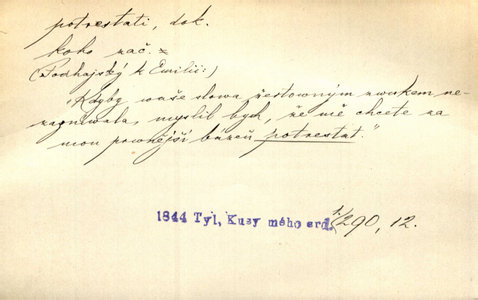 potrestati, dok.
koho zač.
(Podhajský k Emilii:)
"Kdyby waše slowa žestowným zwukem ne-
zazníwala, myslil bych, že mě chcete za
mou prwnější bázeň potrestat."
1844 Tyl, Kusy mého srd. 1/290, 12.